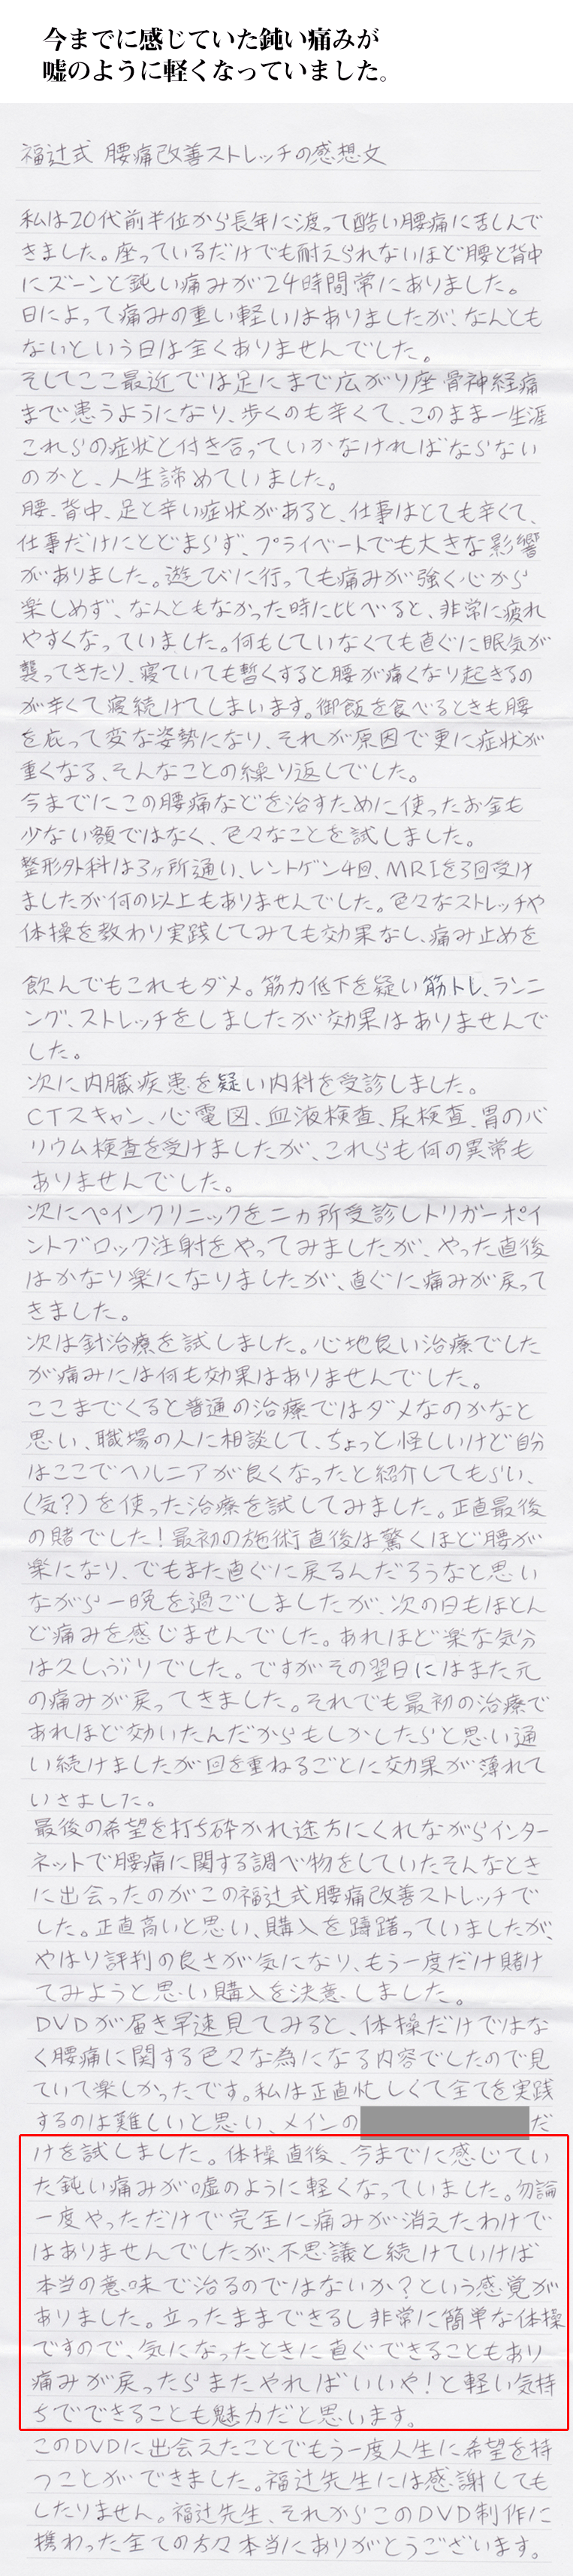 今までに感じていた鈍い痛みが
嘘のように軽くなっていました。
福辻式 腰痛改善ストレッチの感想文
私は20代前半位から長年に渡って酷い腰痛に苦しんで
きました。座っているだけでも耐えられないほど腰と背中
にズーンと鈍い痛みが24時間常にありました。
日によって痛みの重い軽いはありましたが、なんとも
ないという日は全くありませんでした。
そしてここ最近では足にまで広がり座骨神経痛
まで患うようになり、歩くのも辛くて、このまま一生涯
これらの症状と付き合っていかなければならない
のかと、人生諦めていました。
腰、背中、足と辛い症状があると、仕事はとても辛くて、
仕事だけにとどまらず、プライベートでも大きな影響
がありました。遊びに行っても痛みが強く心から
楽しめず、なんともなかった時に比べると、非常に疲れ
やすくなっていました。何もしていなくても直ぐに眠気が
襲ってきたり、寝ていても暫くすると腰が痛くなり起きるの
が辛くて寝続けてしまいます。御飯を食べるときも腰
を庇って変な姿勢になり、それが原因で更に症状が
重くなる、そんなことの繰り返しでした。
今までにこの腰痛などを治すために使ったお金も
少ない額ではなく、色々なことを試しました。
整形外科は3ヶ所通い、レントゲン4回、MRIを3回受け
ましたが何の以上もありませんでした。色々なストレッチや
体操を教わり実践してみても効果なし、痛み止めを
飲んでもこれもダメ。筋力低下を疑い筋トレ、ランニ
ング、ストレッチをしましたが効果はありませんで
した。
次に内臓疾患を疑い内科を受診しました。
CTスキャン、心電図、血液検査、尿検査、胃のバ
リウム検査を受けましたが、これらも何の異常も
ありませんでした。
次にペインクリニックを二ヵ所受診しトリガーポイ
ントブロック注射をやってみましたが、やった直後
はかなり楽になりましたが、直ぐに痛みが戻って
きました。
次は針治療を試しました。心地良い治療でした
が痛みには何も効果はありませんでした。
ここまでくると普通の治療ではダメなのかなと
思い、職場の人に相談して、ちょっと怪しいけど自分
はここでヘルニアが良くなったと紹介してもらい、
(気?)を使った治療を試してみました。正直最後
の賭でした!最初の施術直後は驚くほど腰が
楽になり、でもまた直ぐに戻るんだろうなと思い
ながら一晩を過ごしましたが、次の日もほとん
ど痛みを感じませんでした。あれほど楽な気分
は久しぶりでした。ですがその翌日にはまた元
の痛みが戻ってきました。それでも最初の治療で
あれほど効いたんだからもしかしたらと思い通
い続けましたが回を重ねるごとに効果が薄れて
いきました。
最後の希望を打ち砕かれ途方にくれながらインター
ネットで腰痛に関する調べ物をしていたそんなとき
に出会ったのがこの福辻式腰痛改善ストレッチで
した。正直高いと思い、購入を躊躇っていましたが、
やはり評判の良さが気になり、もう一度だけ賭け
てみようと思い購入を決意しました。
DVDが届き早速見てみると、体操だけではな
く腰痛に関する色々な為になる内容でしたので見
ていて楽しかったです。私は正直忙しくて全てを実践
するのは難しいと思い、メインの だ
けを試しました。体操直後、今までに感じてい
た鈍い痛みが嘘のように軽くなっていました。勿論
一度やっただけで完全に痛みが消えたわけで
はありませんでしたが、不思議と続けていけば
本当の意味で治るのではないか?という感覚が
ありました。立ったままできるし非常に簡単な体操
ですので、気になったときに直ぐできることもあり
痛みが戻ったらまたやればいいや!と軽い気持
ちでできることも魅力だと思います。
このDVDに出会えたことでもう一度人生に希望を持
つことができました。福辻先生には感謝しても
したりません。福辻先生、それからこのDVD制作に
携わった全ての方々本当にありがとうございます。